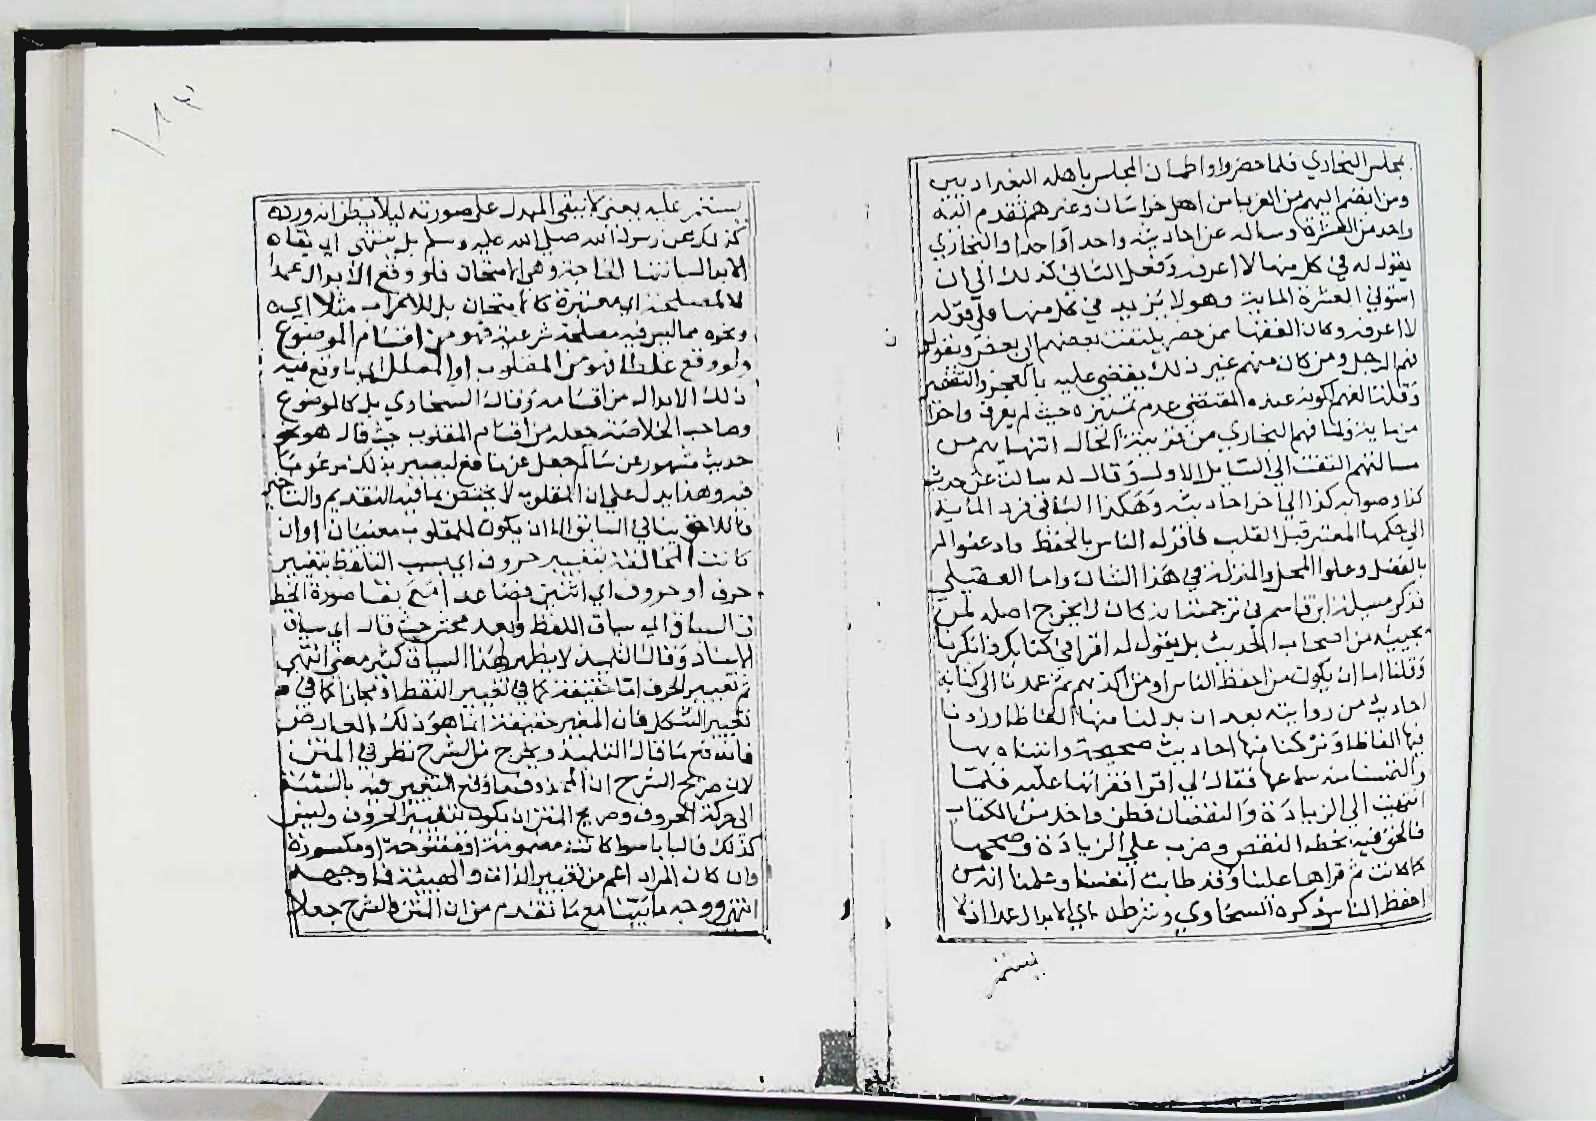 مجلس البخاري فلما حضروا واطمان المجلس باهله البغداديين
ومن انضم اليهم من الغربا من اهل خراسان وغيرهم تقدم اليه
واحد من العشرة وساله عن احاديثه واحدا واحدا والبخاري
يقول له في كل منها لا اعرفه وفعل الثاني كذلك الي ان
استوفي العشرة الماية وهو لا يزيد في كل منها على قوله
لا اعرفه وكان الفقها ممن حضر يلتفت بعضهم الى بعض ويقول
فهم الرجل ومن كان منهم غير ذلك يقضي عليه بالعجز والتقصير
وقلة الفهم لكونه عنده المقتضي عدم تمييزه حيث لم يعرف واحدا
من ماية ولما فهم البخاري من قرينة الحال انتهاءهم من
مسالتهم التفت الى السايل الاول وقال له سالت عن حديث
كذا وصوابه كذا الى اخر احاديثه وهكذا الباقي فرد الماية
الى حكمها المعتبر قبل القلب فاقر له الناس بالحفظ واذعنوا له
بالفضل وعلوا المحل والمنزلة في هذا الشان واما العقيلي
فذكر مسلمة ابن قاسم في ترجمته انه كان لا يخرج اصله لمن
يجيبه من اصحاب الحديث بل يقول له اقرا في كتابك فانكرنا
وقلنا اما ان يكون من احفظ الناس او من اكذبهم ثم عمدنا الى كتابة
احاديث من روايته بعد ان بدلنا منها الفاظا وزدنا
فيها الفاظا وتركنا منها احاديث صحيحة واتيناه بها
والتمسنا منه سماعها فقال لي اقرا فقراتها عليه فلما
انتهيت الى الزيادة والنقصان فطن واخذ مني الكتاب
فالحق فيه بخطه النقص وضرب علي الزيادة وصححها
كما كانت ثم قراها علينا وقد طابت انفسنا وعلمنا انه من
احفظ الناس ذكره السخاوي وشرطه اي الابدال عمدا ان لا
يستمر
١٨٣
يستمر عليه يعني لا يبقى المبدل على صورته ليلا يظن انه ورد
كذلك عن رسول الله صلي الله عليه وسلم بل ينتهي اي بقاه
الابدال بانتها الحاجة وهي الامتحان فلو وقع الابدال عمدا
لا لمصلحة اي معتبرة كالامتحان بل للاغراب مثلا اي
ونحوه مما ليس فيه مصلحة شرعية فهو من اقسام الموضوع
ولو وقع غلطا فهو من المقلوب او المعلل اي ما وقع فيه
ذلك الابدال من اقسامه وقال السخاوي بل كالموضوع
وصاحب الخلاصة جعله من اقسام المقلوب حيث قال هو نحو
حديث مشهور عن سالم جعل عن نافع ليصير بذلك مرغوبا
فيه وهذا يدل علي ان المقلوب لا يختص بما فيه التقديم والتاخير
فاللاحق ينافي السابق الا ان يكون للمقلوب معنيان او ان
كانت المخالفة بتغيير حروف اي بسبب التلفظ بتغيير
حرف او حروف اي اثنين فصاعدا مع بقا صورة الخط
في السياق اي سياق اللفظ وابعد محشي حيث قال اي سياق
الاسناد وقال التلميذ لا يظهر لهذا السياق كثير معنى انتهى
ثم تغيير الحرف اما حقيقة كما في تغيير النقط او مجازا كما في
تغيير الشكل فان المغير حقيقة انما هو ذلك العارض
فاندفع ما قال التلميذ ويخرج من الشرح نظر في المتن
لان صريح الشرح ان المحرف ما وقع التغيير فيه بالنسبة
الى حركة الحروف وصريح المتن ان يكون بتغيير الحروف وليس
كذلك فالبا با سوا كانت مضمومة او مفتوحة او مكسورة
وان كان المراد اعم من تغيير الذات والهيئة فما وجهه
انتهى ووجه ما بينا مع ما تقدم من ان المتن والشرح جعلا